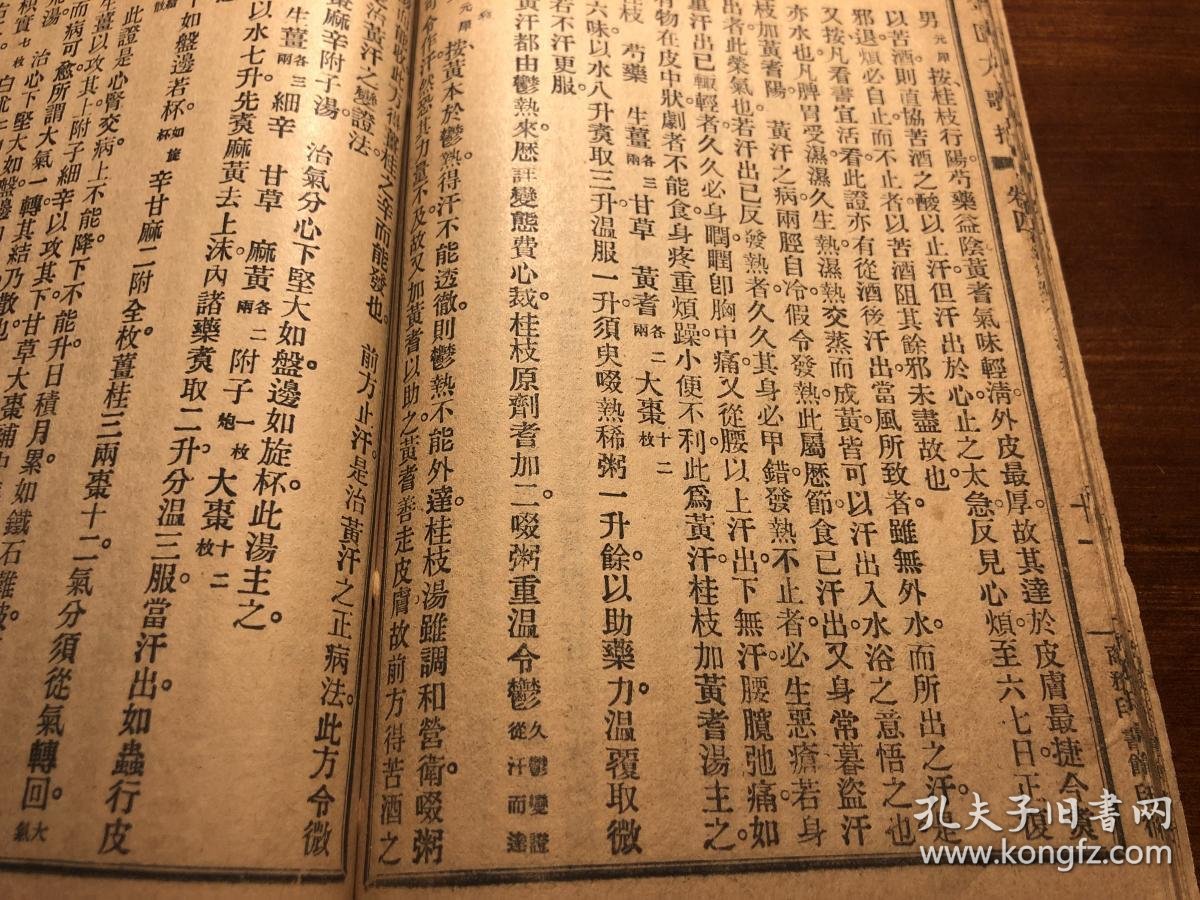 卷四
十一
商務印書館印行
男元犀按桂枝行陽芍藥益陰黃耆氣味輕淸外皮最厚故其達於皮膚最捷今煑
以苦酒則直協苦酒之酸以止汗但汗出於心止之太急反見心煩至六七日正復
邪退煩必自止而不止者以苦酒阻其餘邪未盡故也
又按凡看書宜活看此證亦有從酒後汗出當風所致者雖無外水而所出之汗是
亦水也凡脾胃受濕濕久生熱濕熱交蒸而成黃皆可以汗出入水浴之意悟之也
黃汗之病兩脛自冷假令發熱此屬歷節食已汗出又身常暮盜汗
出者此榮氣也若汗出已反發熱者久久其身必甲錯發熱不止者必生惡瘡若身
重汗出已輒輕者久久必身瞤瞤卽胸中痛又從腰以上汗出下無汗腰臗弛痛如
有物在皮中狀劇者不能食身疼重煩躁小便不利此爲黃汗桂枝加黃耆湯主之
桂枝 芍藥 生薑各三兩 甘草 黃耆各二兩 大棗十二枚
六味以水八升煑取三升溫服一升須臾啜熱稀粥一升餘以助藥力溫覆取微
若不汗更服
黃汗都由鬱熱來歷詳變態費心裁桂枝原劑耆加二啜粥重溫令鬱久鬱變證從汗而達
元犀按黃本於鬱熱得汗不能透徹則鬱熱不能外達桂枝湯雖調和營衛啜粥
可令作汗然恐其力量不及故又加黃耆以助之黃耆善走皮膚故前方得苦酒之
而能收此方得薑桂之辛而能發也 前方止汗是治黃汗之正病法此方令微
治黃汗之變證法
麻辛附子湯 治氣分心下堅大如盤邊如旋杯此湯主之
生薑各三兩 細辛 甘草 麻黃各二兩 附子一枚炮 大棗十二枚
以水七升先煑麻黃去上沫內諸藥煑取二升分溫三服當汗出如蟲行皮
如盤邊若杯如旋杯 辛甘麻二附全枚薑桂三兩棗十二氣分須從氣轉回大氣
此證是心腎交病上不能降下不能升日積月累如鐵石難破
生薑以攻其上附子細辛以攻其下甘草大棗補中
而病可愈所謂大氣一轉其結乃散也
枳實七枚 治心下堅大如盤邊
孔夫子旧书网
www.kongfz.com